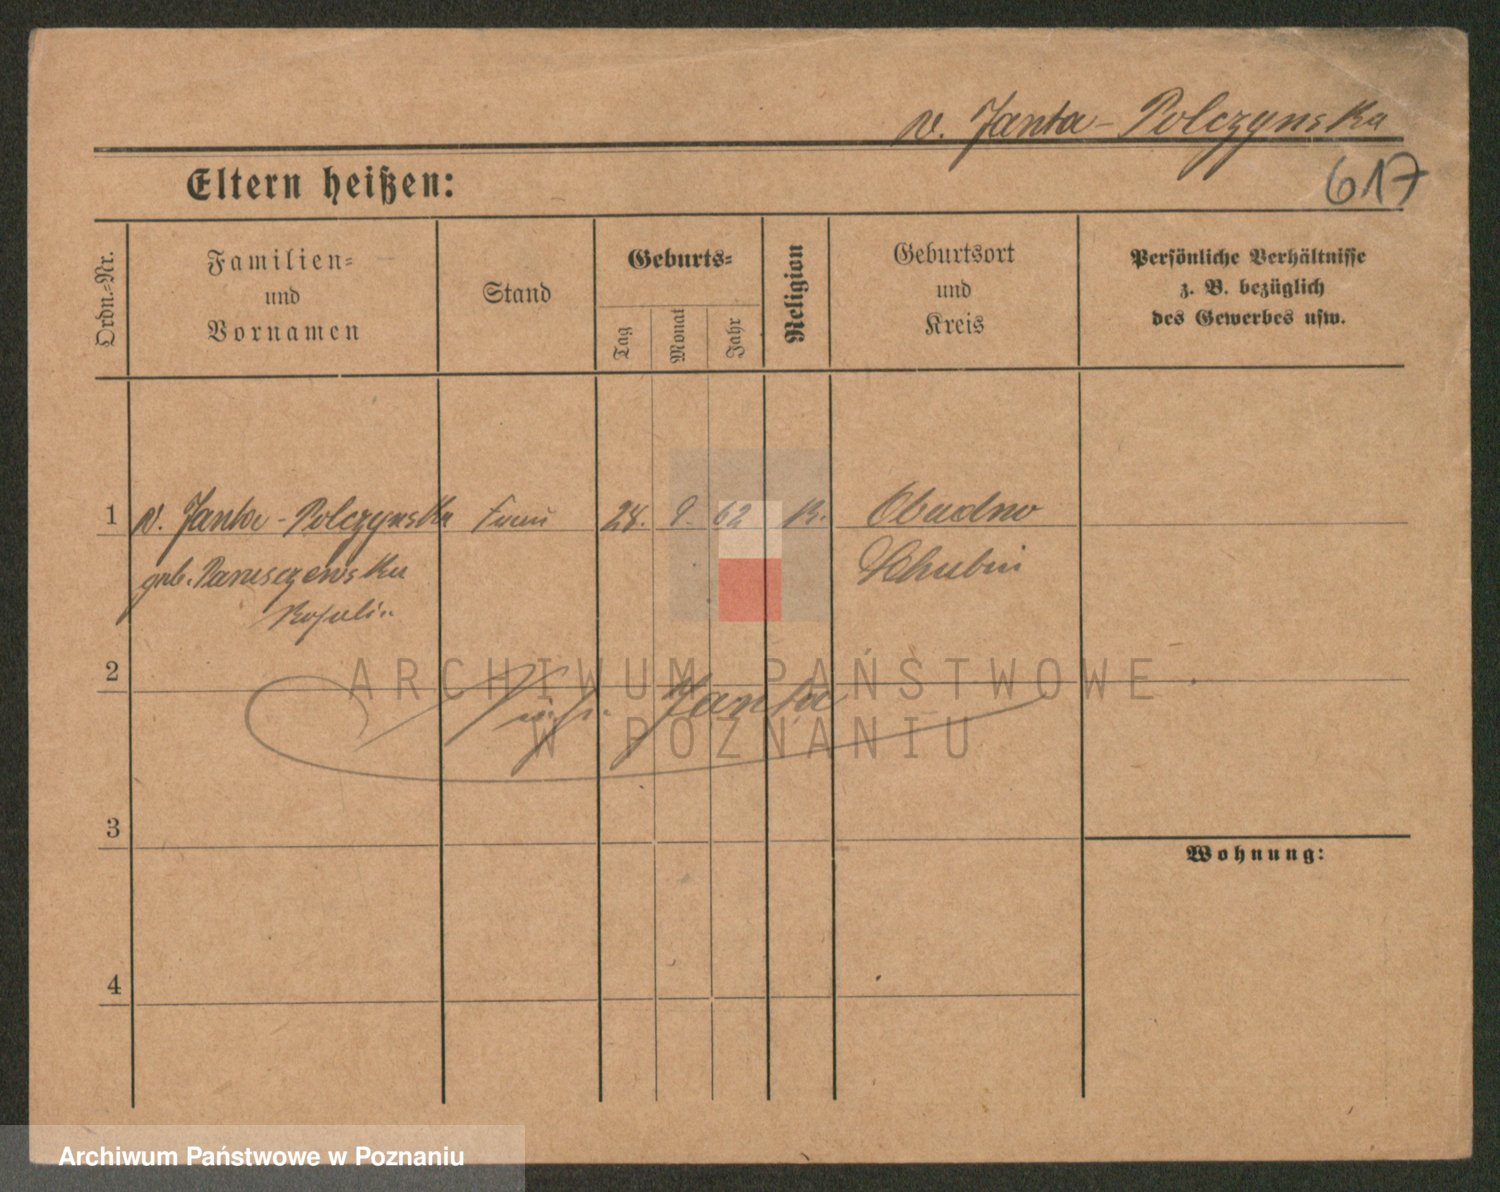 v. Janta-Polczynska
617
Eltern heißen:
Ordn.-Nr.
Familien-
und
Vornamen
Stand
Geburts-
Tag
Monat
Jahr
Religion
Geburtsort
und
Kreis
Persönliche Verhältnisse
z. B. bezüglich
des Gewerbes usw.
1 v. Janta-Polczynska Frau 24. 9. 62 K. Obudno
geb. Paruszewska Schubin
Rosalie
2
ARCHIWUM PAŃSTWOWE
Janta
W POZNANIU
3
Wohnung:
4
Archiwum Państwowe w Poznaniu